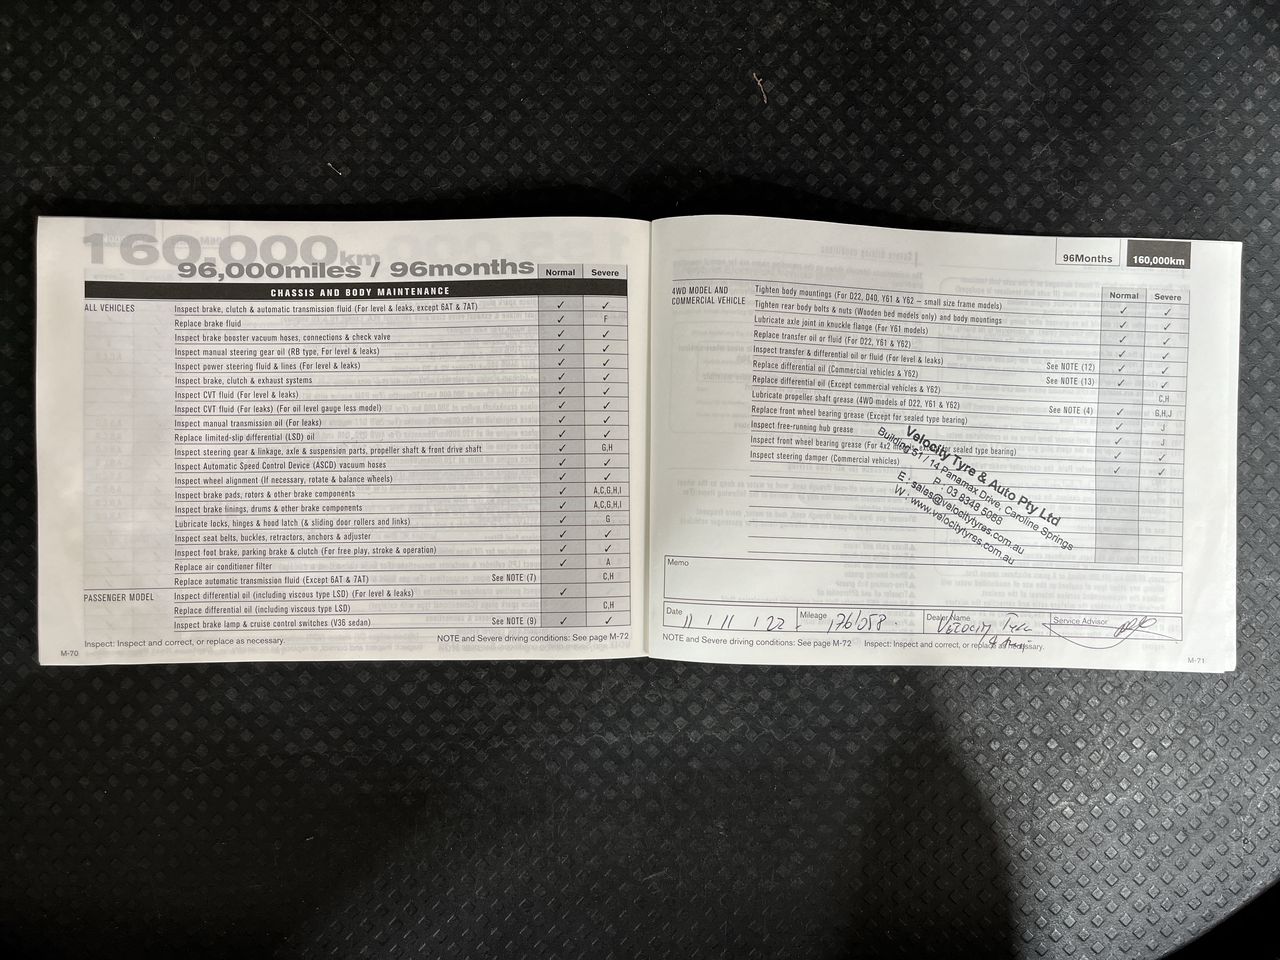 160,000km
96,000miles / 96months
Normal Severe
CHASSIS AND BODY MAINTENANCE
ALL VEHICLES
Inspect brake, clutch & automatic transmission fluid (For level & leaks, except 6AT & 7AT) ✓ ✓
Replace brake fluid ✓ F
Inspect brake booster vacuum hoses, connections & check valve ✓ ✓
Inspect manual steering gear oil (RB type, For level & leaks) ✓ ✓
Inspect power steering fluid & lines (For level & leaks) ✓ ✓
Inspect brake, clutch & exhaust systems ✓ ✓
Inspect CVT fluid (For level & leaks) ✓ ✓
Inspect CVT fluid (For leaks) (For oil level gauge less model) ✓ ✓
Inspect manual transmission oil (For leaks) ✓ ✓
Replace limited-slip differential (LSD) oil ✓ ✓
Inspect steering gear & linkage, axle & suspension parts, propeller shaft & front drive shaft ✓ G,H
Inspect Automatic Speed Control Device (ASCD) vacuum hoses ✓ ✓
Inspect wheel alignment (If necessary, rotate & balance wheels) ✓ ✓
Inspect brake pads, rotors & other brake components ✓ A,C,G,H,I
Inspect brake linings, drums & other brake components ✓ A,C,G,H,I
Lubricate locks, hinges & hood latch (& sliding door rollers and links) ✓ G
Inspect seat belts, buckles, retractors, anchors & adjuster ✓ ✓
Inspect foot brake, parking brake & clutch (For free play, stroke & operation) ✓ ✓
Replace air conditioner filter ✓ A
Replace automatic transmission fluid (Except 6AT & 7AT) See NOTE (7) C,H
PASSENGER MODEL
Inspect differential oil (including viscous type LSD) (For level & leaks) ✓
Replace differential oil (including viscous type LSD) C,H
Inspect brake lamp & cruise control switches (V36 sedan) See NOTE (9) ✓ ✓
Inspect: Inspect and correct, or replace as necessary. NOTE and Severe driving conditions: See page M-72
M-70
96Months 160,000km
Normal Severe
4WD MODEL AND
COMMERCIAL VEHICLE
Tighten body mountings (For D22, D40, Y61 & Y62 – small size frame models) ✓ ✓
Tighten rear body bolts & nuts (Wooden bed models only) and body mountings ✓ ✓
Lubricate axle joint in knuckle flange (For Y61 models) ✓ ✓
Replace transfer oil or fluid (For D22, Y61 & Y62) ✓ ✓
Inspect transfer & differential oil or fluid (For level & leaks) See NOTE (12) ✓ ✓
Replace differential oil (Commercial vehicles & Y62) See NOTE (13) ✓ ✓
Replace differential oil (Except commercial vehicles & Y62) C,H
Lubricate propeller shaft grease (4WD models of D22, Y61 & Y62) See NOTE (4) ✓ G,H,J
Replace front wheel bearing grease (Except for sealed type bearing) ✓ J
Inspect free-running hub grease ✓ J
Inspect front wheel bearing grease (For 4x2 sealed type bearing) ✓ ✓
Inspect steering damper (Commercial vehicles) ✓ ✓
Velocity Tyre & Auto Pty Ltd
Building S1 / 14 Panamax Drive, Caroline Springs
P : 03 8348 5088
E : sales@velocitytyres.com.au
W : www.velocitytyres.com.au
Memo
Date 11 / 11 / 22 Mileage 176058 Dealer Name Velocity Tyre Service Advisor
NOTE and Severe driving conditions: See page M-72 Inspect: Inspect and correct, or replace as necessary.
M-71